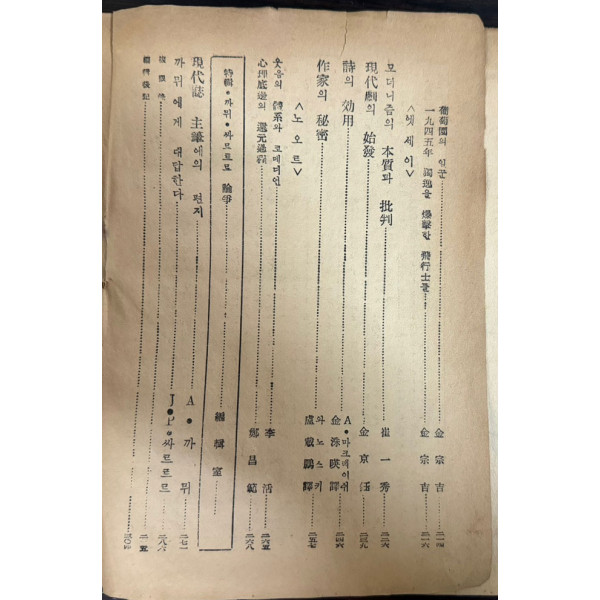 葡萄園의 일꾼 金宗吉 二一四
一九四五年 獨逸을 爆擊한 飛行士들 金宗吉 二一六
〈엣세이〉
모더니즘의 本質과 批判 崔一秀 二二六
現代劇의 始發 金京鈺 二三九
詩의 効用 A・마크레이쉬 金洙暎譯 二四六
作家의 秘密 와노스키 盧戴鵬譯 二五七
〈노오르〉
웃음의 體系와 코메디언 李活 二六五
心理底邊의 還元過程 鄭昌範 二六八
特輯・까뮈・싸르트르 論爭 編輯室
現代誌 主筆에의 편지 A・까뮈 二七一
까뮈에게 대답한다 J・P・싸르트르 二八八
編輯後記 三〇四